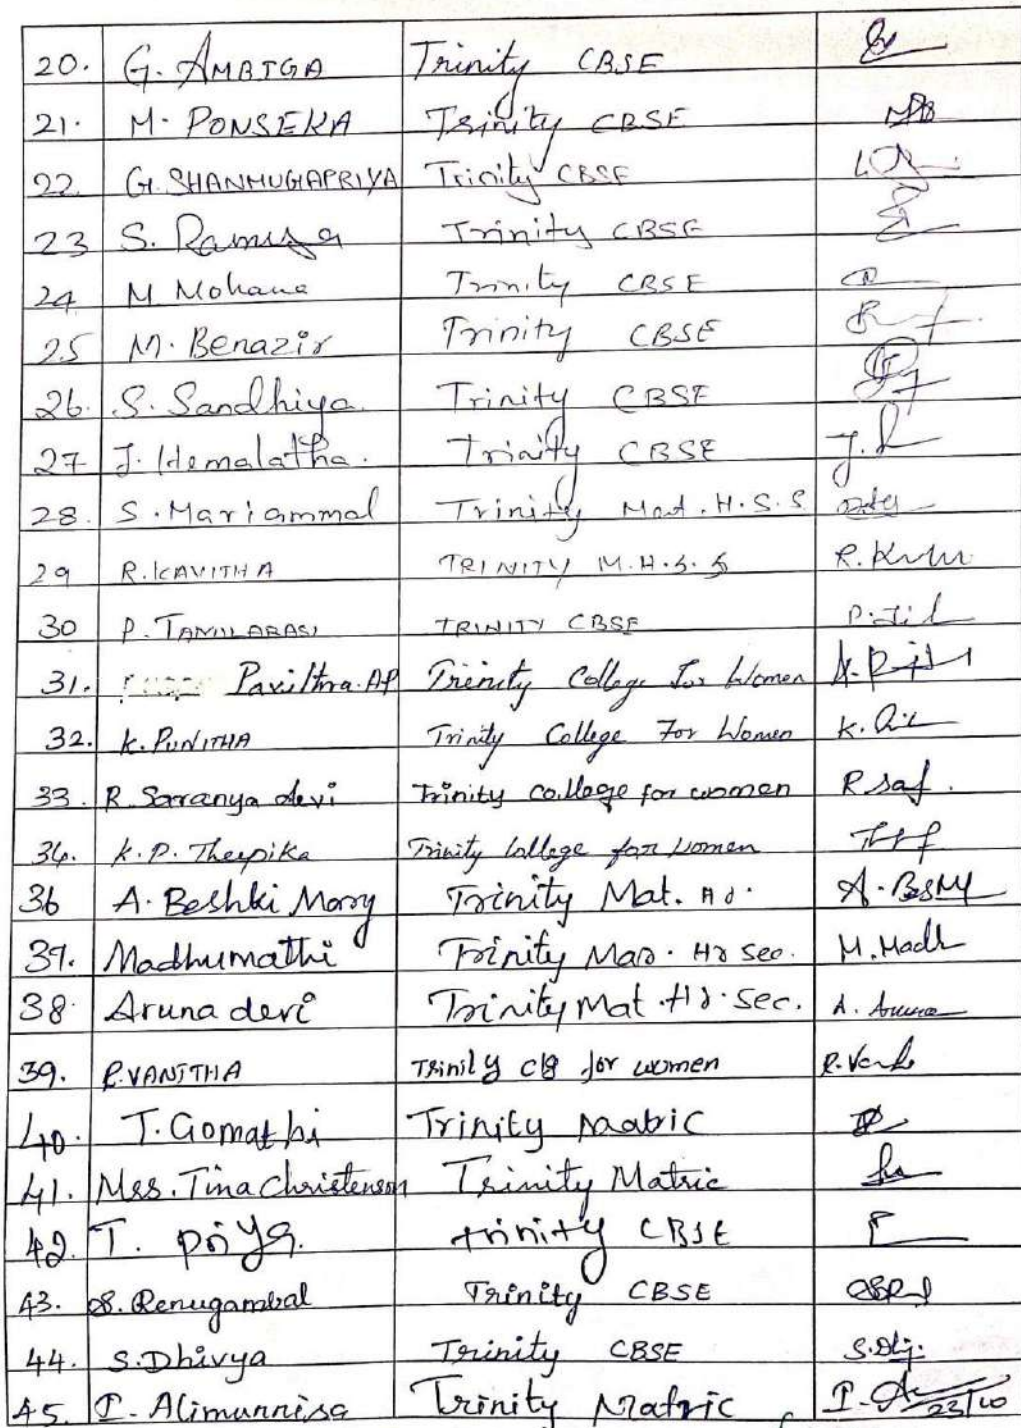 20. G. AMBIGA Trinity CBSE
21. M. PONSEKA Trinity CBSE
22 G. SHANMUGAPRIYA Trinity CBSE
23 S. Trinity CBSE
24 M Mohana Trinity CBSE
25 M. Benazir Trinity CBSE
26. S. Sandhiya. Trinity CBSE
27 J. Hemalatha. Trinity CBSE J.
28. S. Mariammal Trinity Mat. H.S.S
29 R. KAVITHA TRINITY M.H.S.S R.
30 P. TAMILARASI TRINITY CBSE P.
31. Pavithra. AP Trinity College for Women
32. K. PUNITHA Trinity College For Women K.
33. R. Saranya devi Trinity college for women R
34. K. P. Theepika Trinity College for Women
36 A. Beshki Mary Trinity Mat. A.
37. Madhumathi Trinity Hr Sec. M. Madh
38. Aruna devi Trinity Mat. Hr. Sec. A.
39. R. VANITHA Trinity for women R.
40. T. Gomathi Trinity Matric
41. Mrs. Tina Christenson Trinity Matric
42. T. priya. trinity CBSE
43. S. Renugambal Trinity CBSE
44. S. Dhivya Trinity CBSE
45. I. Alimunnisa Trinity Matric I. 23/10